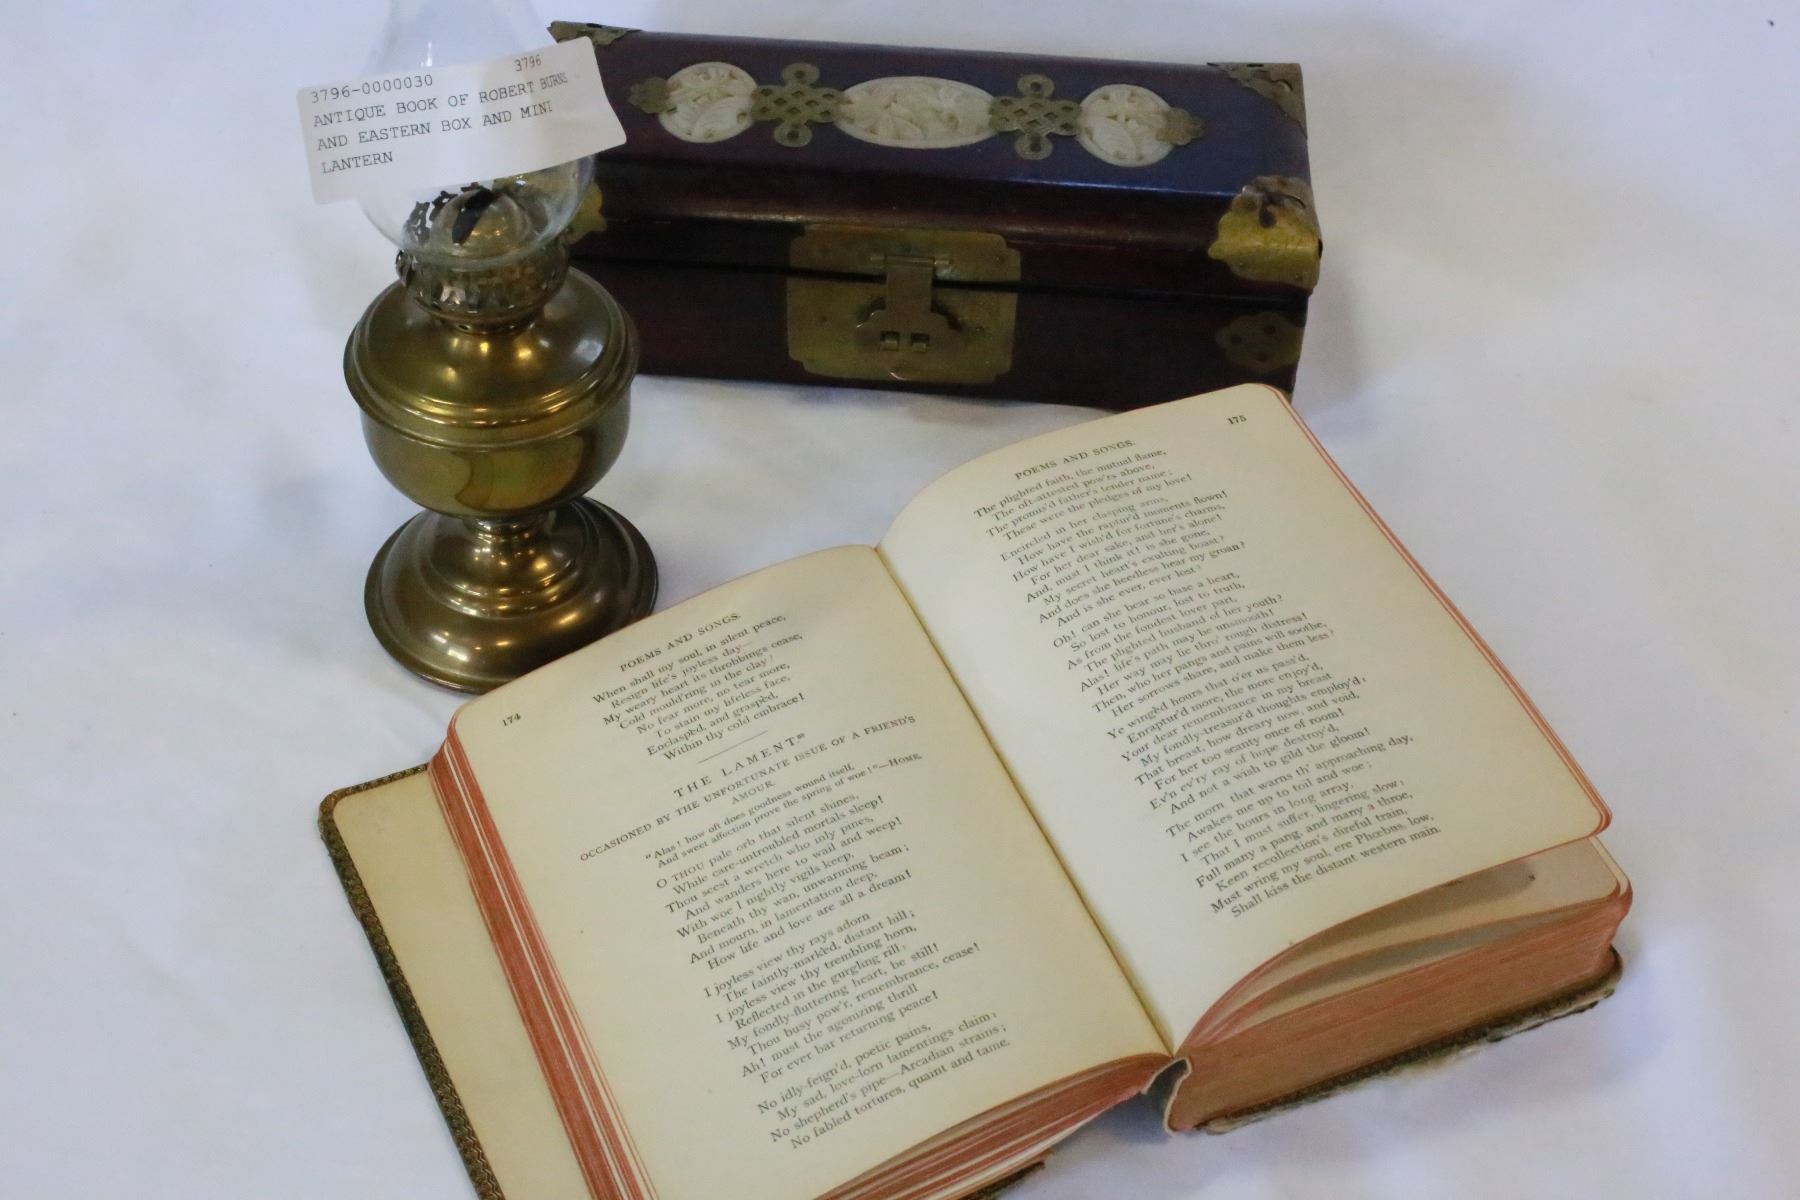 3796-0000030 3796
ANTIQUE BOOK OF ROBERT BURNS
AND EASTERN BOX AND MINI
LANTERN
174
POEMS AND SONGS.
When shall my soul, in silent peace,
Resign life's joyless day—
My weary heart its throbbings cease,
Cold mould'ring in the clay?
No fear more, no tear more,
To stain my lifeless face,
Enclaspèd, and graspèd,
Within thy cold embrace!
THE LAMENT
OCCASIONED BY THE UNFORTUNATE ISSUE OF A FRIEND'S
AMOUR.
"Alas! how oft does goodness wound itself,
And sweet affection prove the spring of woe!"—HOME.
O THOU pale orb that silent shines,
While care-untroubled mortals sleep!
Thou seest a wretch who inly pines,
And wanders here to wail and weep!
With woe I nightly vigils keep,
Beneath thy wan, unwarming beam;
And mourn, in lamentation deep,
How life and love are all a dream!
I joyless view thy rays adorn
The faintly-markèd, distant hill;
I joyless view thy trembling horn,
Reflected in the gurgling rill:
My fondly-fluttering heart, be still!
Thou busy pow'r, remembrance, cease!
Ah! must the agonizing thrill
For ever bar returning peace!
No idly-feign'd, poetic pains,
My sad, love-lorn lamentings claim:
No shepherd's pipe—Arcadian strains;
No fabled tortures, quaint and tame.
POEMS AND SONGS.
175
The plighted faith, the mutual flame,
The oft-attested pow'rs above,
The promis'd father's tender name;
These were the pledges of my love!
Encircled in her clasping arms,
How have the raptur'd moments flown!
How have I wish'd for fortune's charms,
For her dear sake, and her's alone!
And, must I think it! is she gone,
My secret heart's exulting boast?
And does she heedless hear my groan?
And is she ever, ever lost?
Oh! can she bear so base a heart,
So lost to honour, lost to truth,
As from the fondest lover part,
The plighted husband of her youth?
Alas! life's path may be unsmooth!
Her way may lie thro' rough distress!
Then, who her pangs and pains will soothe,
Her sorrows share, and make them less?
Ye wingèd hours that o'er us pass'd,
Enraptur'd more, the more enjoy'd,
Your dear remembrance in my breast
My fondly-treasur'd thoughts employ'd:
That breast, how dreary now, and void,
For her too scanty once of room!
Ev'n ev'ry ray of hope destroy'd,
And not a wish to gild the gloom!
The morn that warns th' approaching day,
Awakes me up to toil and woe;
I see the hours in long array,
That I must suffer, lingering slow:
Full many a pang, and many a throe,
Keen recollection's direful train,
Must wring my soul, ere Phœbus, low,
Shall kiss the distant western main.